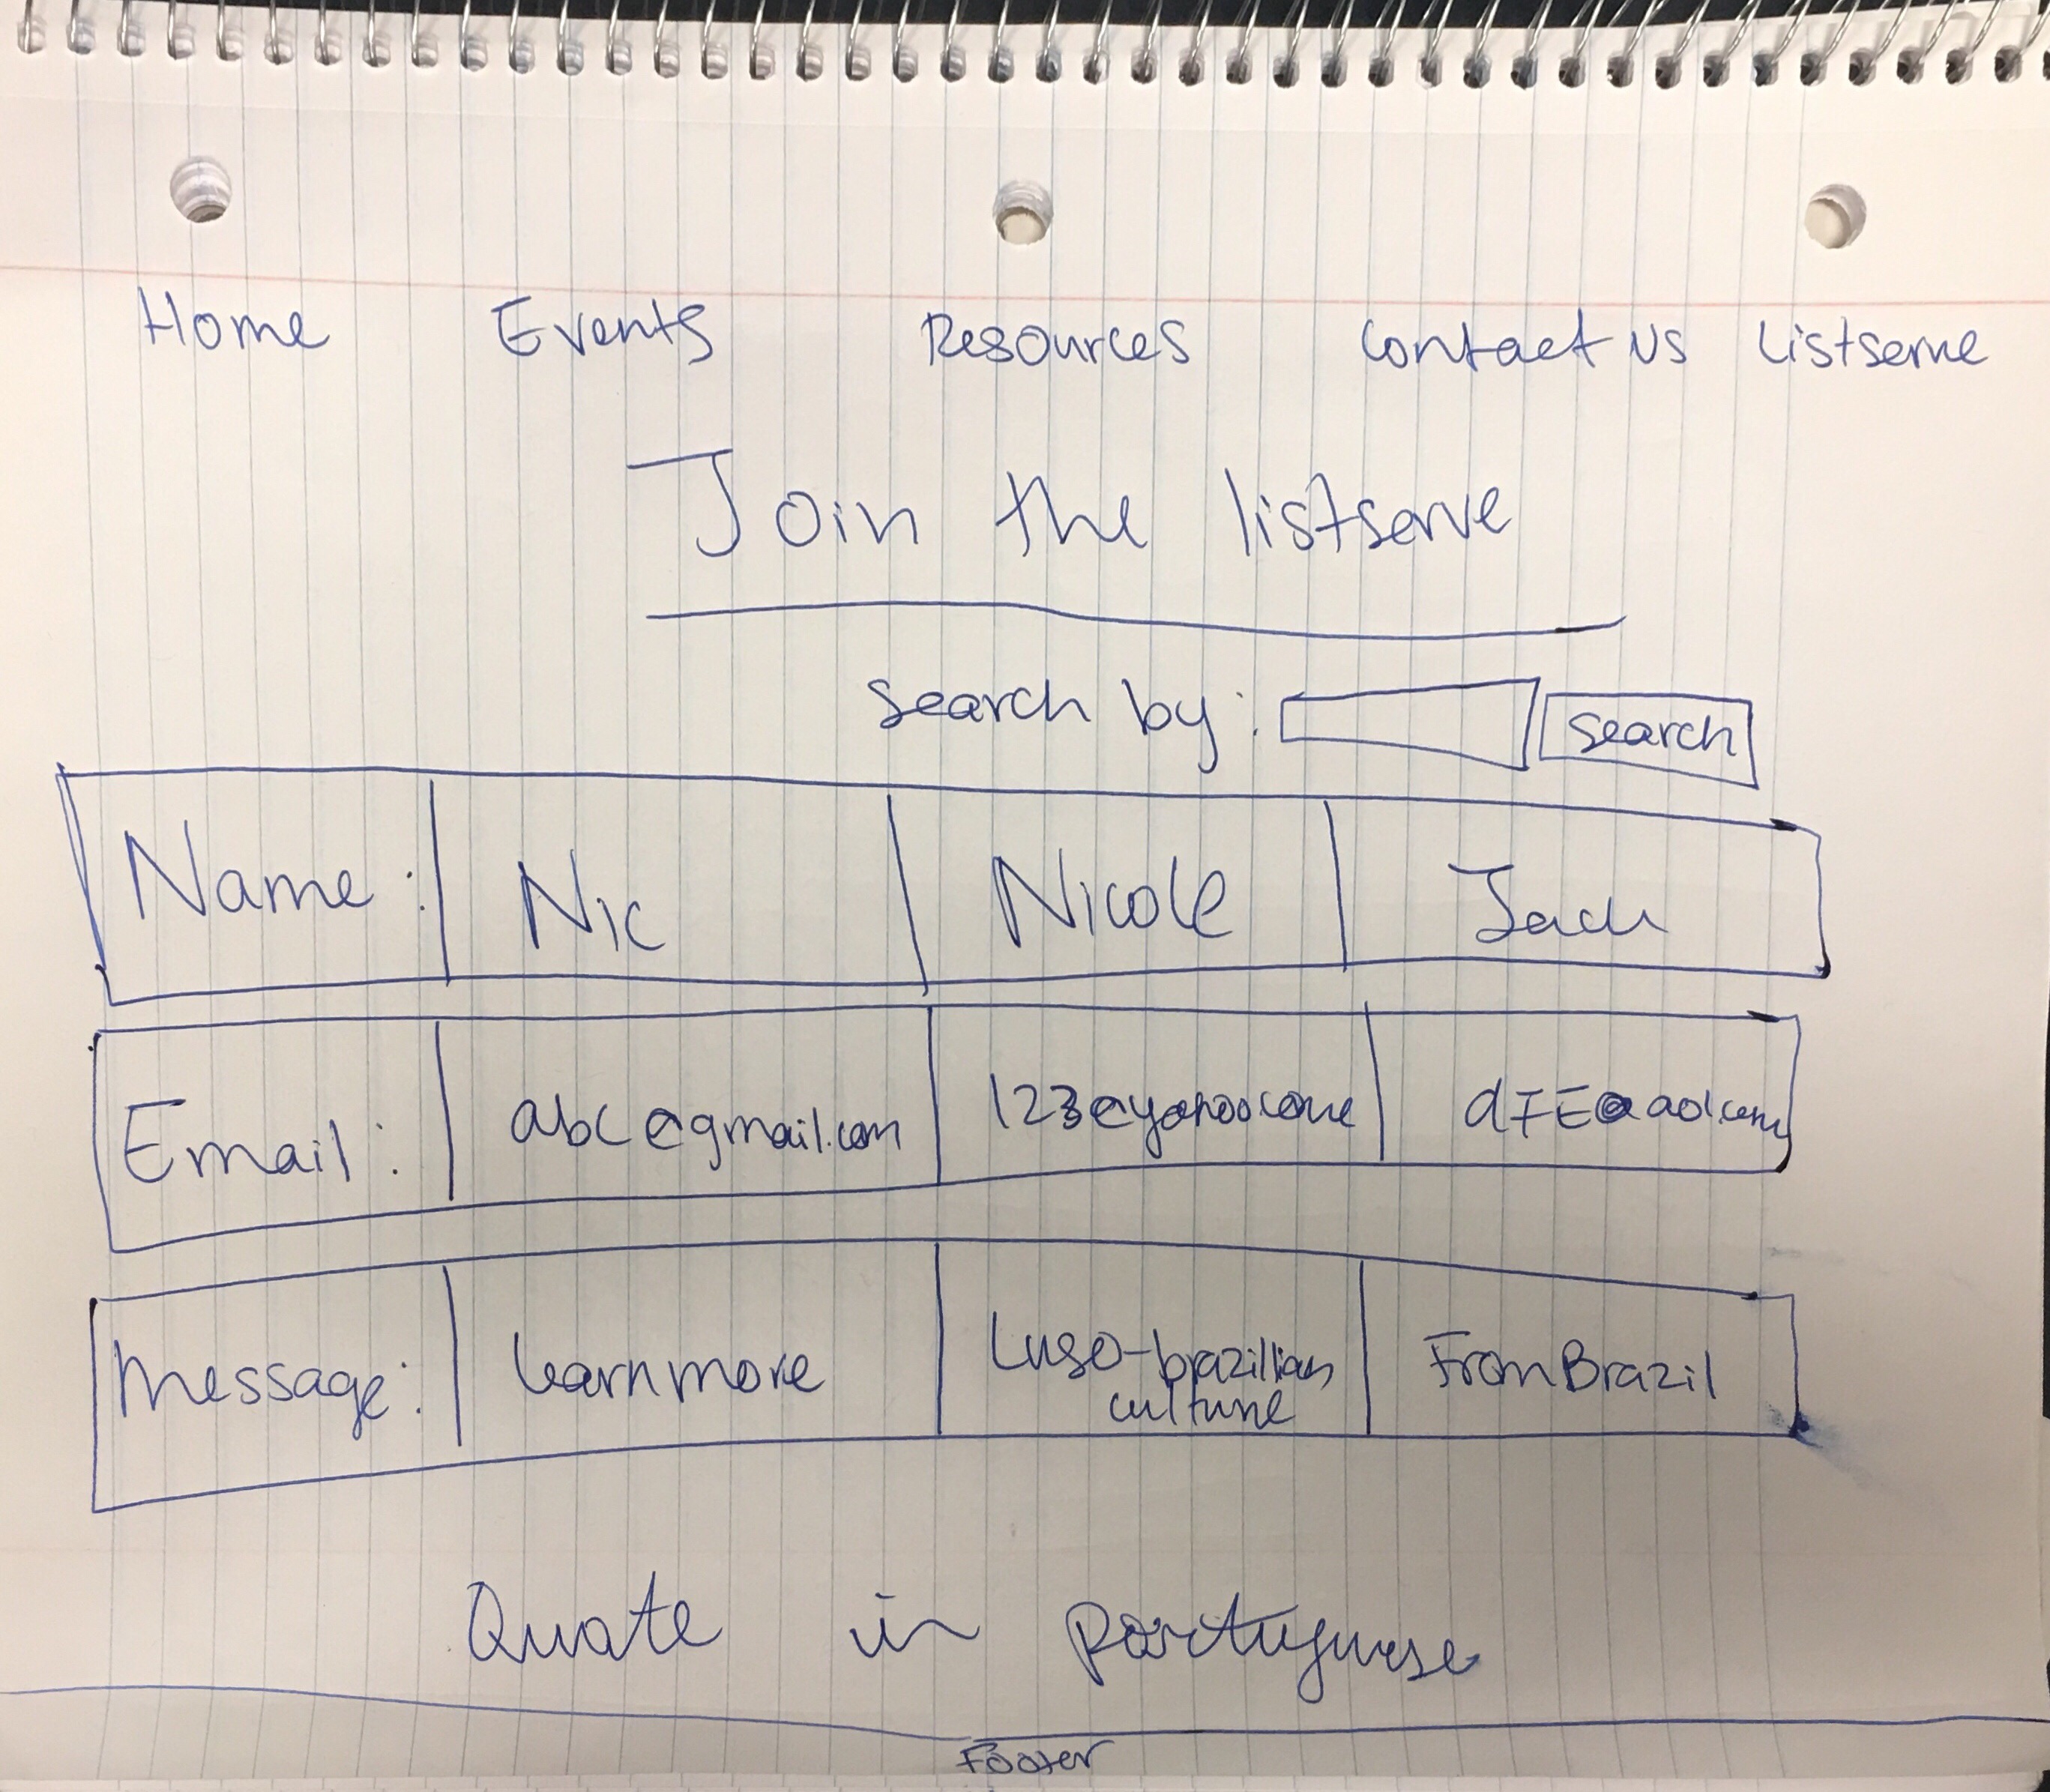 Home Events Resources Contact Us Listserve
Join the listserve
search by: search
Name: Nic Nicole Jack
Email: abc@gmail.com 123@yahoo.com dFE@aol.com
message: learn more Luso-brazilian
culture From Brazil
Quote in portuguese
Footer